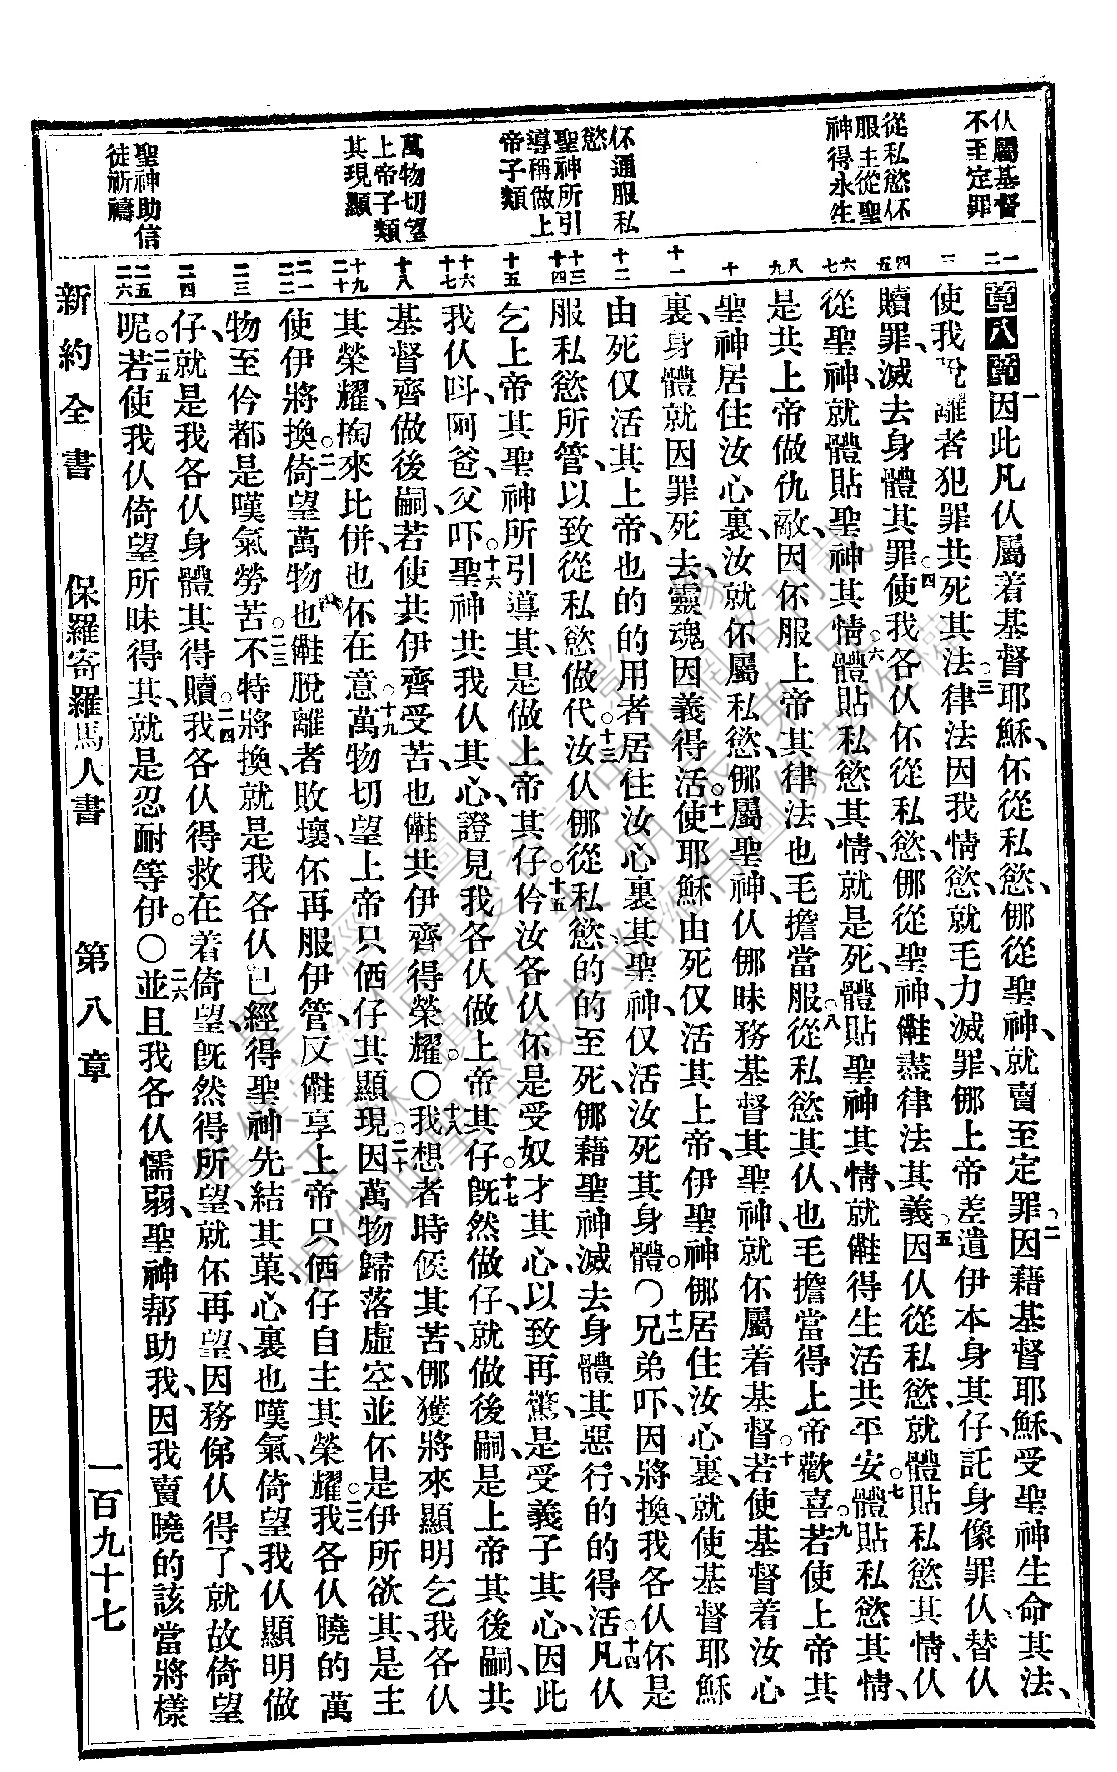 仈屬基督
不至定罪
從私慾伓
服主從聖
神得永生
伓通服私
慾
聖神所引
導稱做上
帝子類
萬物切望
上帝子類
其現顯
聖神助信
徒祈禱
一二
三
四五
六七
八九
十
十一
十二
十三十四
十五
十六十七
十八
十九二十
二一二二
二三
二四
二五二六
第八章一因此凡仈屬着基督耶穌、伓從私慾、㑚從聖神、就賣至定罪。二因藉基督耶穌、受聖神生命其法、
使我脫離者犯罪共死其法律。三法因我情慾、就毛力滅罪、㑚上帝差遣伊本身其仔、託身像罪仈、替仈
贖罪、滅去身體其罪。四使我各仈伓從私慾、㑚從聖神、㒕盡律法其義。五因仈從私慾、就體貼私慾其情、仈
從聖神、就體貼聖神其情。六體貼私慾其情、就是死、體貼聖神其情、就㒕得生活共平安。七體貼私慾其情、
是共上帝做仇敵、因伓服上帝其律法、也毛擔當服。八從私慾其仈、也毛擔當得上帝歡喜。九若使上帝其
聖神居住汝心裏、汝就伓屬私慾、㑚屬聖神、仈㑚昧務基督其聖神、就伓屬着基督。十若使基督着汝心
裏、身體就因罪死去、靈魂因義得活。十一使耶穌由死仅活其上帝、伊聖神㑚居住汝心裏、就使基督耶穌
由死仅活其上帝、也的的用者居住汝心裏其聖神、仅活汝死其身體。〇十二兄弟吓、因將換我各仈伓是
服私慾所管、以致從私慾做代。十三汝仈㑚從私慾、的的至死、㑚藉聖神、滅去身體其惡行、的的得活。十四凡仈
乞上帝其聖神所引導其、是做上帝其仔。十五仱汝各仈伓是受奴才其心、以致再驚、是受義子其心、因此
我仈呌阿爸、父吓。十六聖神共我仈其心、證見我各仈做上帝其仔。十七既然做仔、就做後嗣、是上帝其後嗣、共
基督齊做後嗣、若使共伊齊受苦、也㒕共伊齊得榮耀。〇十八我想者時候其苦、㑚獲將來顯明乞我各仈
其榮耀、掏來比併、也伓在意。十九萬物切望上帝只𠆧仔其顯現。二十因萬物歸落虛空、並伓是伊所欲其、是主
使伊將換。二一倚望萬物也㒕脫離者敗壞、伓再服伊管、反㒕享上帝只𠆧仔自主其榮耀。二二我各仈曉的萬
物至仱都是嘆氣勞苦。二三不特將換、就是我各仈已經得聖神先結其菓、心裏也嘆氣、倚望我仈顯明做
仔、就是我各仈身體其得贖。二四我各仈得救、在着倚望、既然得所望、就伓再望、因務俤仈得了、就故倚望
呢。二五若使我仈倚望所昧得其、就是忍耐等伊。〇二六並且我各仈懦弱、聖神帮助我、因我賣曉的該當將樣
新約全書
保羅寄羅馬人書
第八章
一百九十七